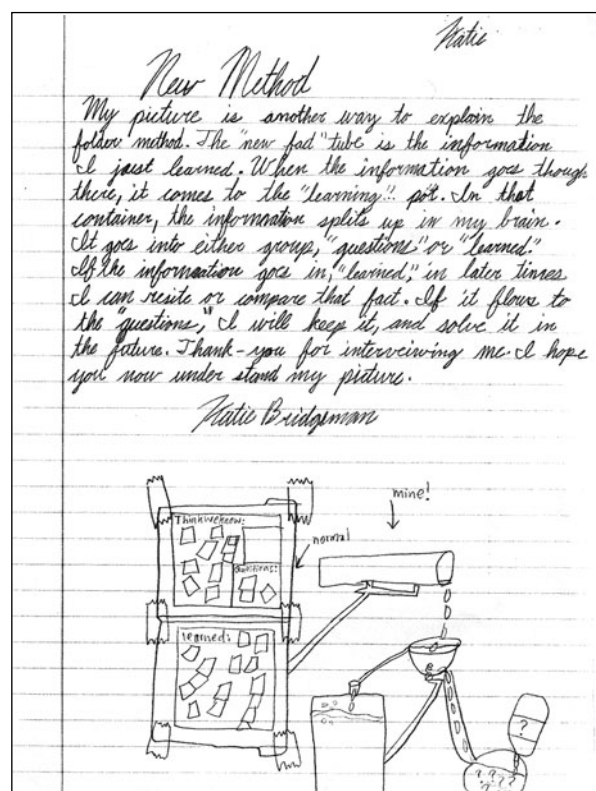 Katie
New Method
My picture is another way to explain the
folder method. The "new fad" tube is the information
I just learned. When the information goes though
there, it comes to the "learning" pot. In that
container, the information splits up in my brain.
It goes into either group, "questions" or "learned."
If the information goes in, "learned," in later times
I can resite or compare that fact. If it flows to
the "questions," I will keep it, and solve it in
the future. Thank-you for interveiwing me. I hope
you now under stand my picture.
Katie Bridgeman
mine!
Think we know:
normal
questions:
learned:
?
? ? ? ?